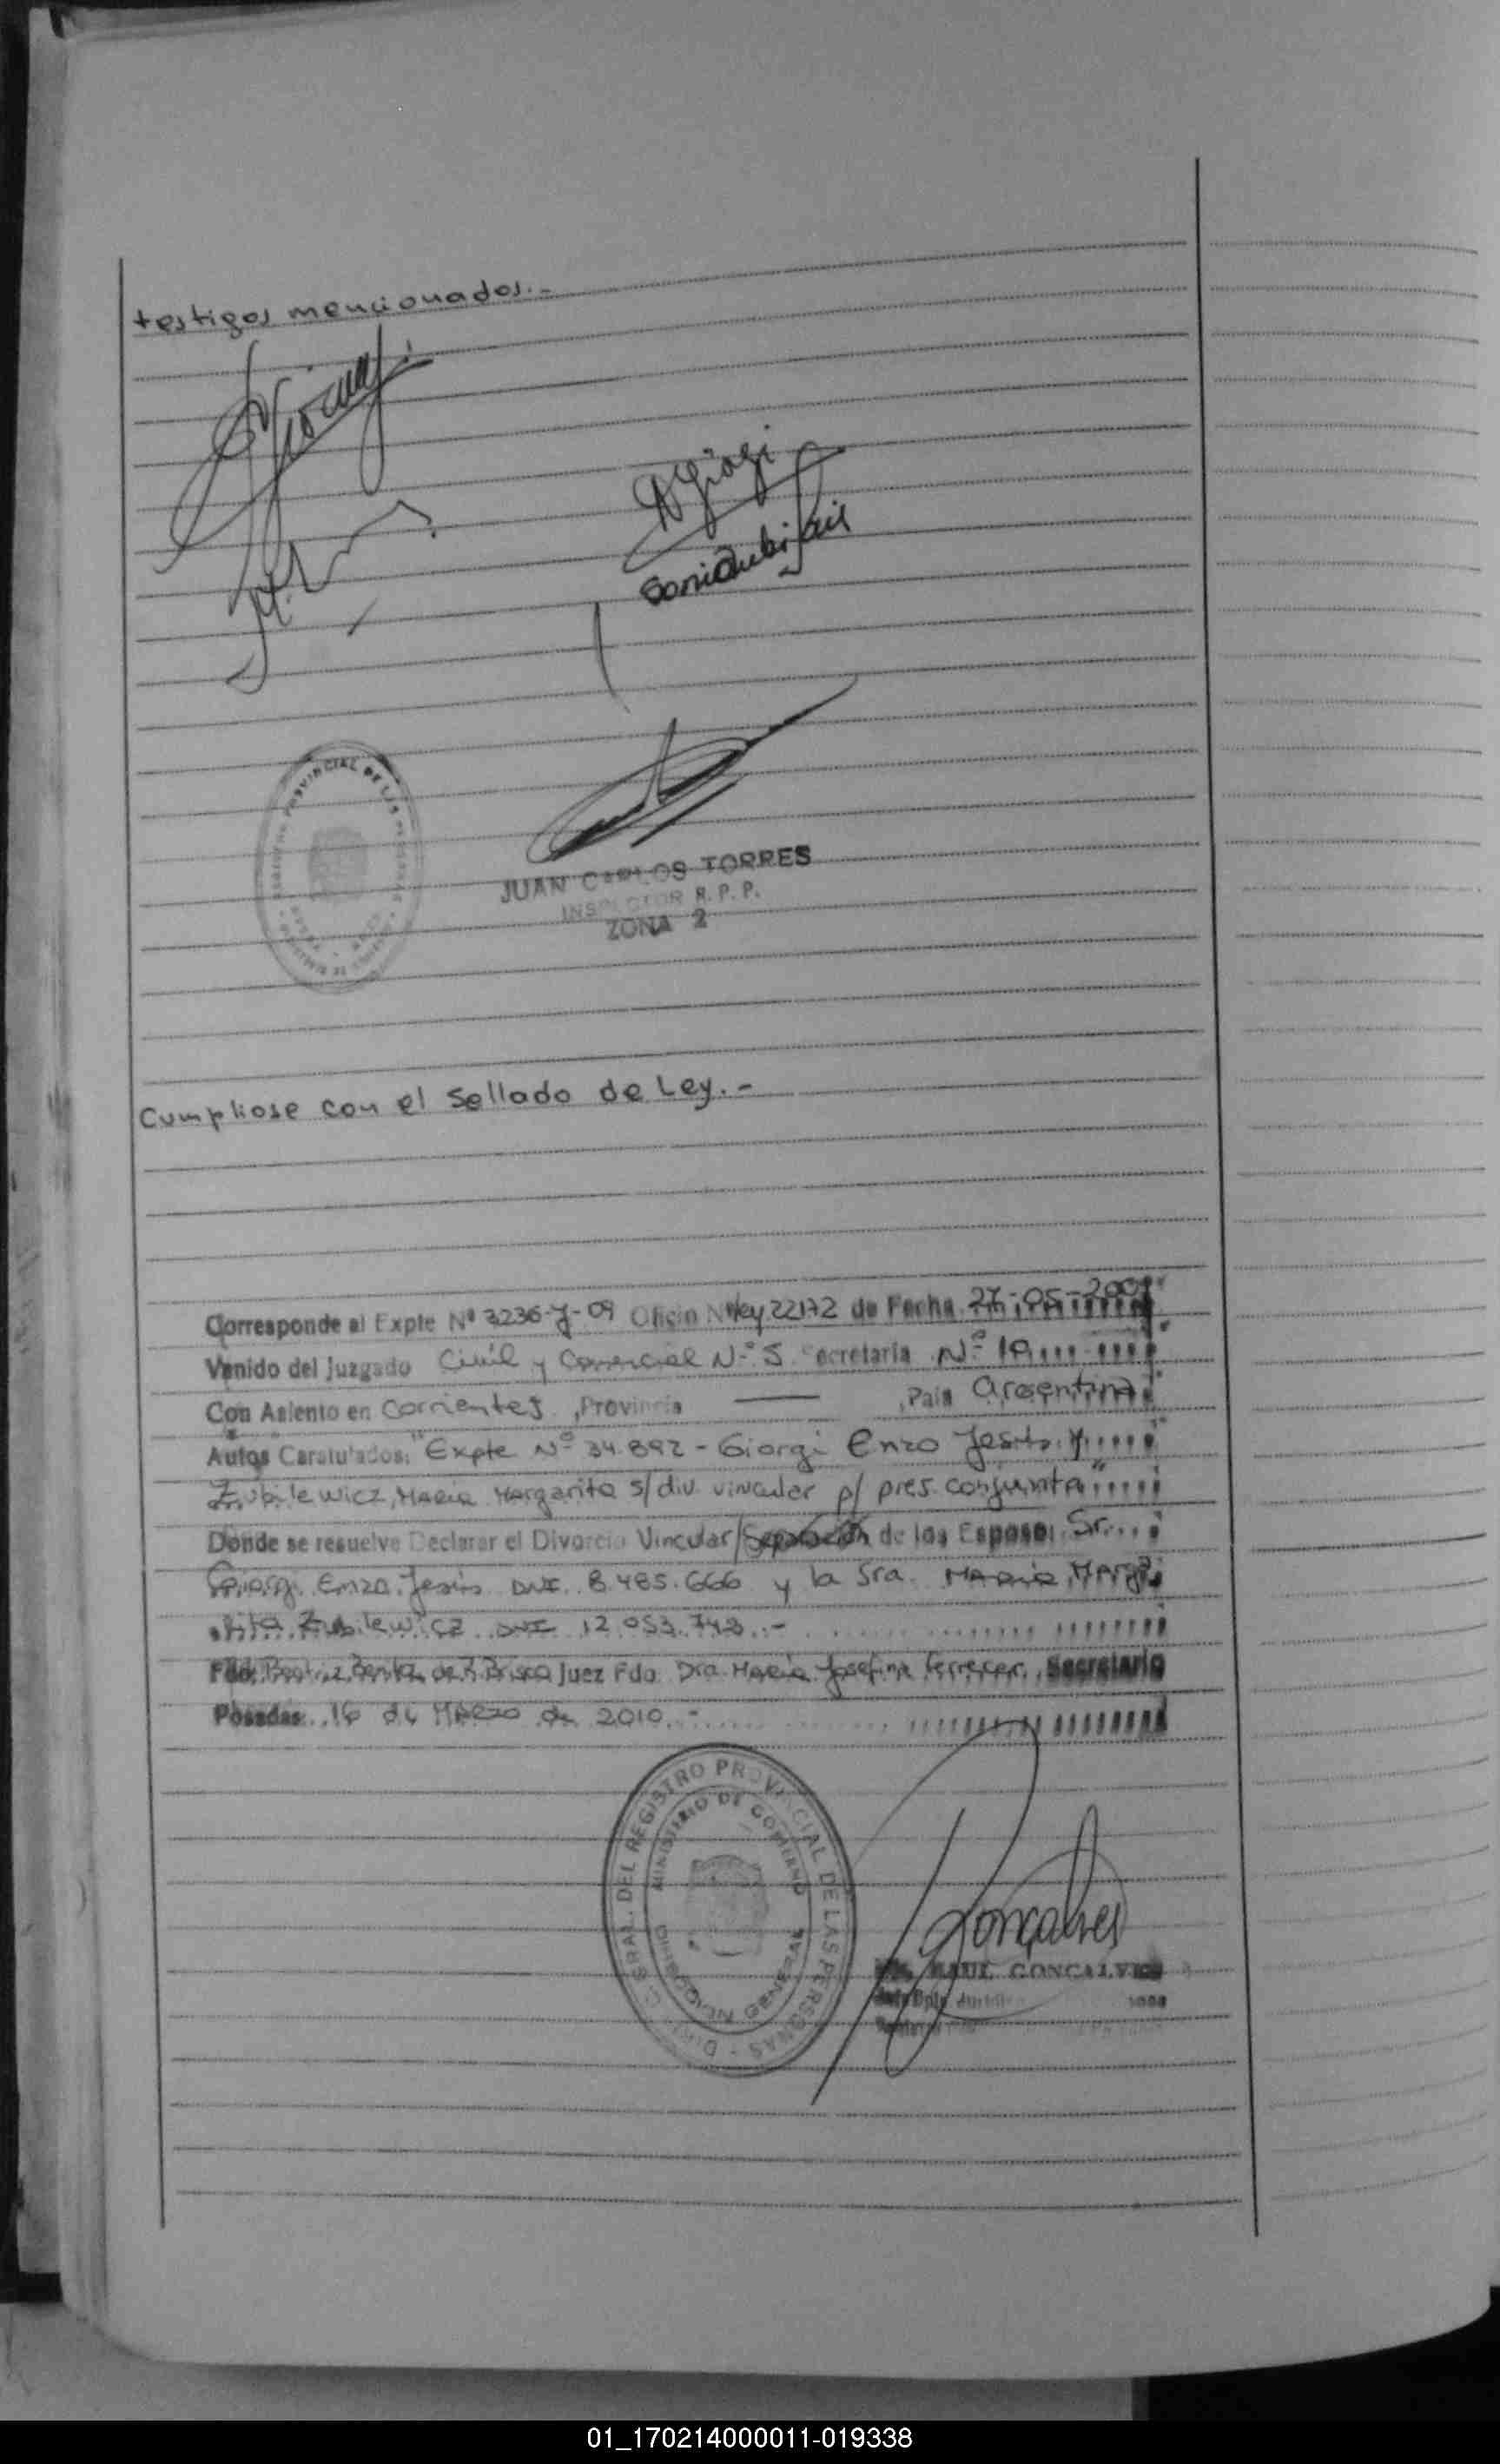 testigos mencionados.-
Giorgi
JUAN CARLOS TORRES
INSPECTOR R.P.P.
ZONA 2
Cumpliose con el Sellado de Ley.-
Corresponde al Expte Nº 3236-J-09 Oficio Nº Ley 22172 de Fecha 27-05-2009
Venido del Juzgado Civil y Comercial Nº 5 Secretaria Nº 10
Con Asiento en Corrientes, Provincia — , País Argentina
Autos Caratulados: "Expte Nº 34.892 - Giorgi Enzo Jesús y
Zubilewicz, Maria Margarita s/div. vincular p/ pres. conjunta"
Donde se resuelve Declarar el Divorcio Vincular/Separación de los Esposos Sr.
Giorgi Enzo Jesús DNI 8.485.666 y la Sra. Maria Marga
rita Zubilewicz DNI 12.053.748.-
Fdo. Beatriz Benitez de Brisco Juez Fdo. Dra. Maria Josefina Ferreyer Secretario
Posadas 16 de Marzo de 2010.-
C. GRAL. DEL REGISTRO PROVINCIAL DE LAS PERSONAS
MINISTERIO DE GOBIERNO
DIRECCION GENERAL
Goncalves
RAUL GONCALVES
01_170214000011-019338